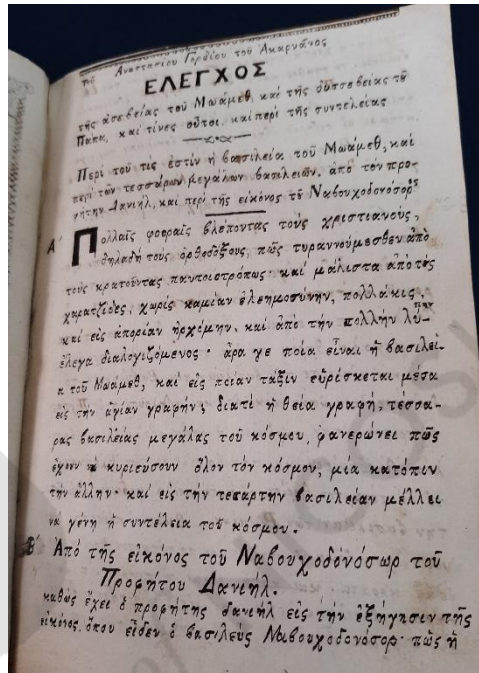 τοῦ Ἀναστασίου Γορδίου τοῦ Ἀκαρνᾶνος
ΕΛΕΓΧΟΣ
τῆς ἀσεβείας τοῦ Μωάμεθ, καὶ τῆς δυσσεβείας τοῦ
Πάπα, καὶ τίνες οὗτοι. καὶ περὶ τῆς συντελείας
Περὶ τοῦ τίς ἐστὶν ἡ βασιλεία τοῦ Μωάμεθ, καὶ
περὶ τῶν τεσσάρων μεγάλων βασιλειῶν. ἀπὸ τὸν προ-
φήτην Δανιήλ, καὶ περὶ τῆς εἰκόνος τοῦ Ναβουχοδονόσορος
Α΄ Πολλαῖς φοραῖς βλέποντας τοὺς χριστιανούς,
δηλαδὴ τοὺς ὀρθοδόξους, πῶς τυραννούμεσθεν ἀπὸ
τοὺς κρατοῦντας παντοιοτρόπως· καὶ μάλιστα ἀπὸ τὲς
χαρατζίδες, χωρὶς καμίαν ἐλεημοσύνην, πολλάκις,
καὶ εἰς ἀπορίαν ἠρχόμην, καὶ ἀπὸ τὴν πολλὴν λύ-πην
ἔλεγα διαλογιζόμενος· ἄρα γε ποία εἶναι ἡ βασιλεί-
α τοῦ Μωάμεθ, καὶ εἰς ποίαν τάξιν εὑρίσκεται μέσα
εἰς τὴν ἁγίαν γραφήν; διατὶ ἡ θεία γραφή, τέσσα-
ρας βασιλείας μεγάλας τοῦ κόσμου, φανερώνει πῶς
ἔχουν νὰ κυριεύσουν ὅλον τὸν κόσμον, μία κατόπιν
τὴν ἄλλην· καὶ εἰς τὴν τετάρτην βασιλείαν μέλλει
νὰ γένῃ ἡ συντέλεια τοῦ κόσμου.
Β΄ Ἀπὸ τῆς εἰκόνος τοῦ Ναβουχοδονόσωρ τοῦ
Προφήτου Δανιήλ.
καθὼς ἔχει ὁ προφήτης δανιὴλ εἰς τὴν ἐξήγησιν τῆς
εἰκόνος, ὅπου εἶδεν ὁ βασιλεὺς Ναβουχοδονόσορ· πῶς ἡ